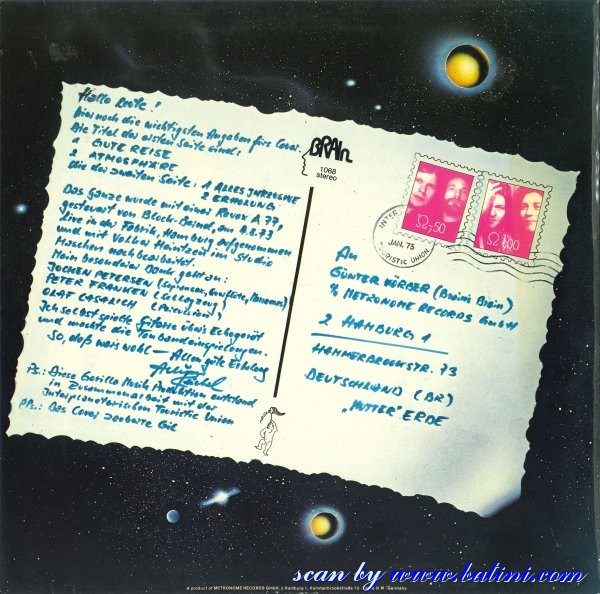 Hallo Leute!
Hier noch die wichtigsten Angaben fürs Cover,
Die Titel der ersten Seite sind:
1 GUTE REISE
2 ATMOSPHÄRE
Die der zweiten Seite: 1 ALLES INTENSIVE
2 ERHOLUNG
Das Ganze wurde mit einer Revox A 77,
gesteuert von Block-Bernd, am
Live in der Fabrik, Hamburg aufgenommen
und mit Volker Heintzen im Studio
Maschen nachbearbeitet.
Mein besonderer Dank geht an:
JOCHEN PETERSEN
PETER FRANKEN
OLAF CASALICH
Ich selbst spiele Gitarre übers Echogerät
und machte die Tonbandeinspielungen.
So, daß wars wohl — Allen gute Erholung
PS.: Diese Gorilla Musik Produktion entstand
in Zusammenarbeit mit der
Interplanetarischen Touristic Union
PPS.: Das Cover
BRAIN
1068
stereo
Ω7,50
Ω 100
INTER
JAN. 75
RISTIC UNION
An
GÜNTER KÖRBER (Brain Brain)
% METRONOME RECORDS GmbH
2 HAMBURG 1
HAMMERBROOKSTR. 73
DEUTSCHLAND (BR)
„MUTTER" ERDE
A product of METRONOME RECORDS GMBH, 2 Hamburg 1, Hammerbrookstraße 73
scan by www.batini.com